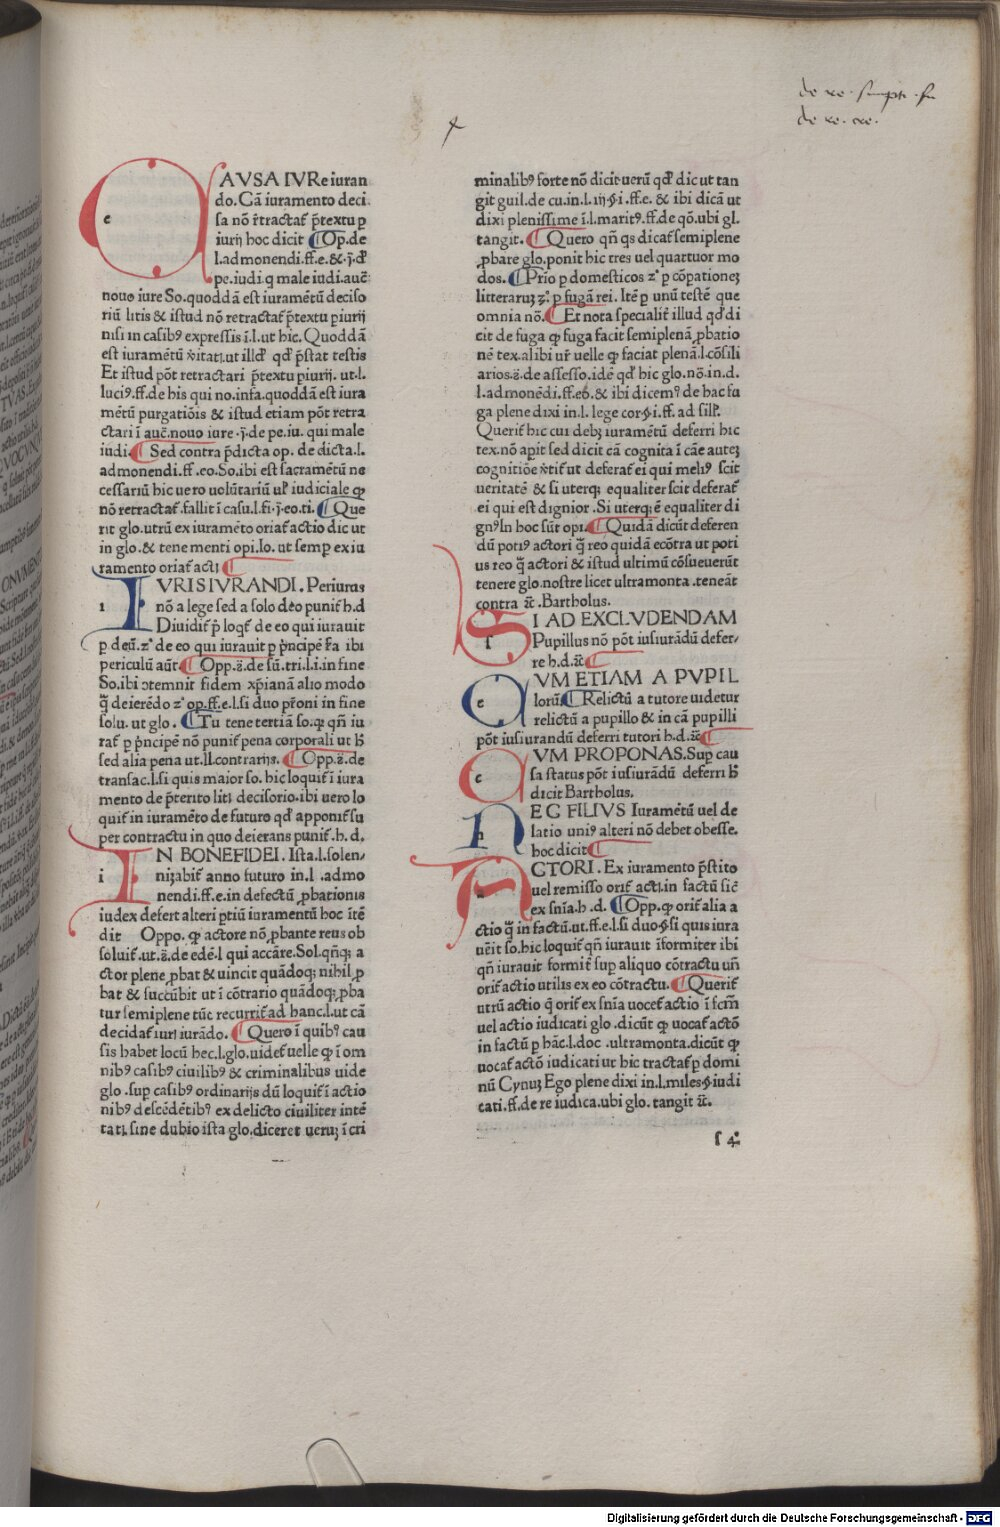 de re. simpli. fu
de re. cre.
CAVSA IVRe iuran
do. Cā iuramento deci
sa nō r̄tractat̄ p̄textu p
iurij hoc dicit ¶ Op. de
l. admonendi. ff. e. & .j. d̄
pe. iudi. q male iudi. auc̄
nouo iure So. quoddā est iuramētū deciso
riū litis & istud nō retractat̄ p̄textu piurij
nisi in casibꝰ expressis ī. l. ut hic. Quoddā
est iuramētū v̄itati. ut illd̄ qd̄ p̄stat testis
Et istud pōt retractari p̄textu piurij. ut. l.
luciꝰ. ff. de his qui no. infa. quoddā est iura
mētū purgatiōis & istud etiam pōt retra
ctari ī auc̄. nouo iure .j. de pe. iu. qui male
iudi. ¶ Sed contra p̄dicta op. de dicta. l.
admonendi. ff. eo. So. ibi est sacramētū ne
cessariū hic uero uolūtariū ul̄ iudiciale ꝙ
nō retractat̄. fallit ī casu. l. fi. j. eo. ti. ¶ Que
rit glo. utrū ex iuramēto oriat̄ actio dic ut
in glo. & tene menti opi. Io. ut semp ex iu
ramento oriat̄ acti ¶
IVRISIVRANDI. Periurus
nō a lege sed a solo deo punit̄ h. d
Diuidit̄ p̄ loqt̄ de eo qui iurauit
p deū. zº de eo qui iurauit p p̄ncipē r̄a ibi
periculū aūt ¶ Opp. ā. de sū. tri. l. i. in fine
So. ibi ↄtemnit fidem xp̄ianā alio modo
q̄ deierēdo zº op. ff. e. l. si duo pr̄oni in fine
solu. ut glo. ¶ Tu tene tertiā so. ꝙ qn̄ iu
rat̄ p p̄ncipē nō punit̄ pena corporali ut h̄
sed alia pena ut. ll. contrarijs. ¶ Opp. ā. de
transac. l. si quis maior so. hic loquit̄ ī iura
mento de p̄terito liti decisorio. ibi uero lo
quit̄ in iuramēto de futuro qd̄ apponit̄ su
per contractu in quo deierans punit̄. h. d.
IN BONEFIDEI. Ista. l. solen/
nizabit̄ anno futuro in. l. admo
nendi. ff. e. in defectū ꝓbationis
iudex defert alteri ptiū iuramentū hoc itē
dit Oppo. ꝙ actore nō ꝓbante reus ob
soluit̄. ut. ā. de edē. l qui accāre. Sol. qn̄qꝫ a
ctor plene ꝓbat & uincit quādoqꝫ nihil ꝓ
bat & succūbit ut ī cōtrario quādoqꝫ ꝓba
tur semiplene tūc recurrit̄ ad hanc. l. ut cā
decidat̄ iuri iurādo. ¶ Quero ī quibꝰ cau
sis habet locū hec. l. glo. uidet̄ uelle ꝙ ī om
nibꝰ casibꝰ ciuilibꝰ & criminalibus uide
glo. sup casibꝰ ordinarijs dū loquit̄ ī actio
nibꝰ descēdētibꝰ ex delicto ciuiliter intē
tati. sine dubio ista glo. diceret uerūꝫ ī cri
minalibꝰ forte nō dicit uerū qd̄ dic ut tan
git guil. de cu. in. l. iij §. i. ff. e. & ibi dicā ut
dixi plenissime ī. l. maritꝰ. ff. de qō. ubi gl.
tangit. ¶ Quero qn̄ qs dicat̄ semiplene
ꝓbare glo. ponit hic tres uel quattuor mo
dos. ¶ Prīo p domesticos zº p cōpationeꝫ
litterarūꝫ zº. p fugā rei. Itē p unū testē que
omnia nō. ¶ Et nota specialit̄ illud qd̄ di
cit de fuga ꝙ fuga facit semiplenā ꝓbatio
nē tex. alibi ur̄ uelle ꝙ faciat plenā. l. cōsili
arios. ā. de assesso. idē qd̄ hic glo. nō. in. d.
l. admonēdi. ff. eo. & ibi dicemꝰ de hac fu
ga plene dixi in. l. lege cor. §. i. ff. ad sill̄.
Querit̄ hic cui debꝫ iuramētū deferri hic
tex. nō apit sed dicit cā cognita ī cāe auteꝫ
cognitiōe v̄tit̄ ut deferat̄ ei qui meliꝰ scit
ueritatē & si uterqꝫ equaliter scit deferat̄
ei qui est dignior. Si uterqꝫ ē equaliter di
gnꝰ In hoc sūt opi. ¶ Quidā dicūt deferen
dū potiꝰ actori q̄ reo quidā ecōtra ut poti
us reo q̄ actori & istud ultimū cōsueuerūt
tenere glo. nostre licet ultramonta. teneāt
contra &c̄. Bartholus.
SI AD EXCLVDENDAM
Pupillus nō pōt iusiurādū defer/
re h. d. &c̄ ¶
CVM ETIAM A PVPIL
lorū. ¶ Relictū a tutore uidetur
relictū a pupillo & in cā pupilli
pōt iusiurandū deferri tutori h. d. &c̄ ¶
CVM PROPONAS. Sup cau
sa status pōt iusiurādū deferri h̄
dicit Bartholus.
NEC FILIVS Iuramētū uel de
latio uniꝰ alteri nō debet obesse.
hoc dicit ¶
ACTORI. Ex iuramento p̄stito
uel remisso orit̄ acti. in factū sic̄
ex snīa. h. d. ¶ Opp. ꝙ orit̄ alia a
ctio q̄ in factū. ut. ff. e. l. si duo §. si quis iura
uēit so. hic loquit̄ qn̄ iurauit īformiter ibi
qn̄ iurauit formit̄ sup aliquo cōtractu un̄
orit̄ actio utilis ex eo cōtractu. ¶ Querit̄
utrū actio q̄ orit̄ ex snīa uocet̄ actio ī fcm̄
uel actio iudicati glo. dicūt ꝙ uocat̄ actō
in factū p hāc. l. doc. ultramonta. dicūt ꝙ
uocat̄ actō iudicati ut hic tractat̄ p domi
nū Cynuꝫ Ego plene dixi in. l. miles §. iudi
cati. ff. de re iudica. ubi glo. tangit &c̄.
f 4
Digitalisierung gefördert durch die Deutsche Forschungsgemeinschaft - DFG